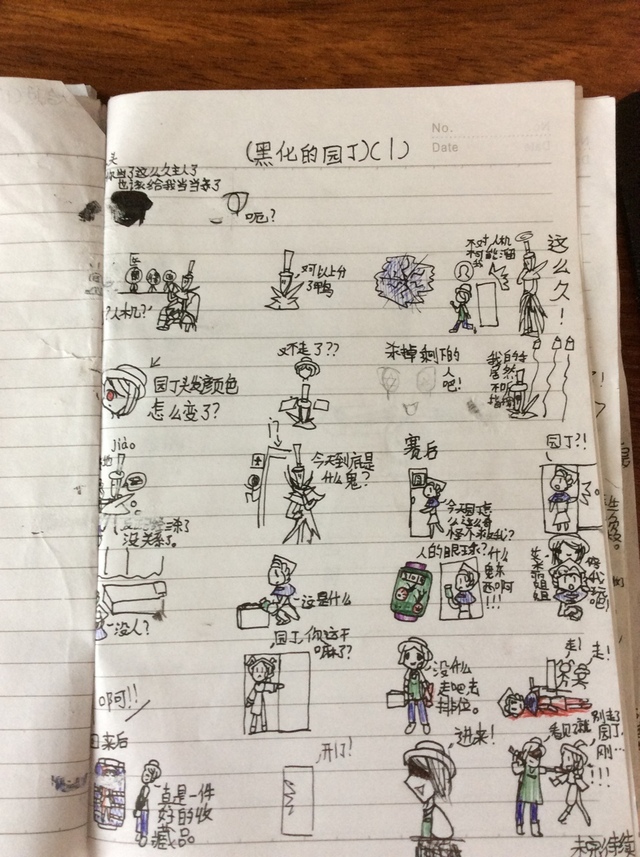 No.
Date
(黑化的园丁)(1)
你当了这么久主人了
也该给我当当客了
呃?
?人机?
对以上分
了鸭
不对人机
柯能溜
我
这么久!
园丁头发颜色
怎么变了?
又不走了??
杀掉剩下的
人
吧!
我自的
居然
不听
指挥
jido
没关系了。
今天到底是
什么鬼?
赛后
今天园丁
怪不救我?
园丁?!
没人?
这是什么
人的眼球?什么
鬼东
西啊
!!!
姐姐
啊!!
园丁,你这干
嘛了?
没什么
走吧去
排位。
走!走!
回来后
真是一件
好的收
藏品。
开门?
进来!
看见了就
别走了
园丁
刚…
!!!
未完待续